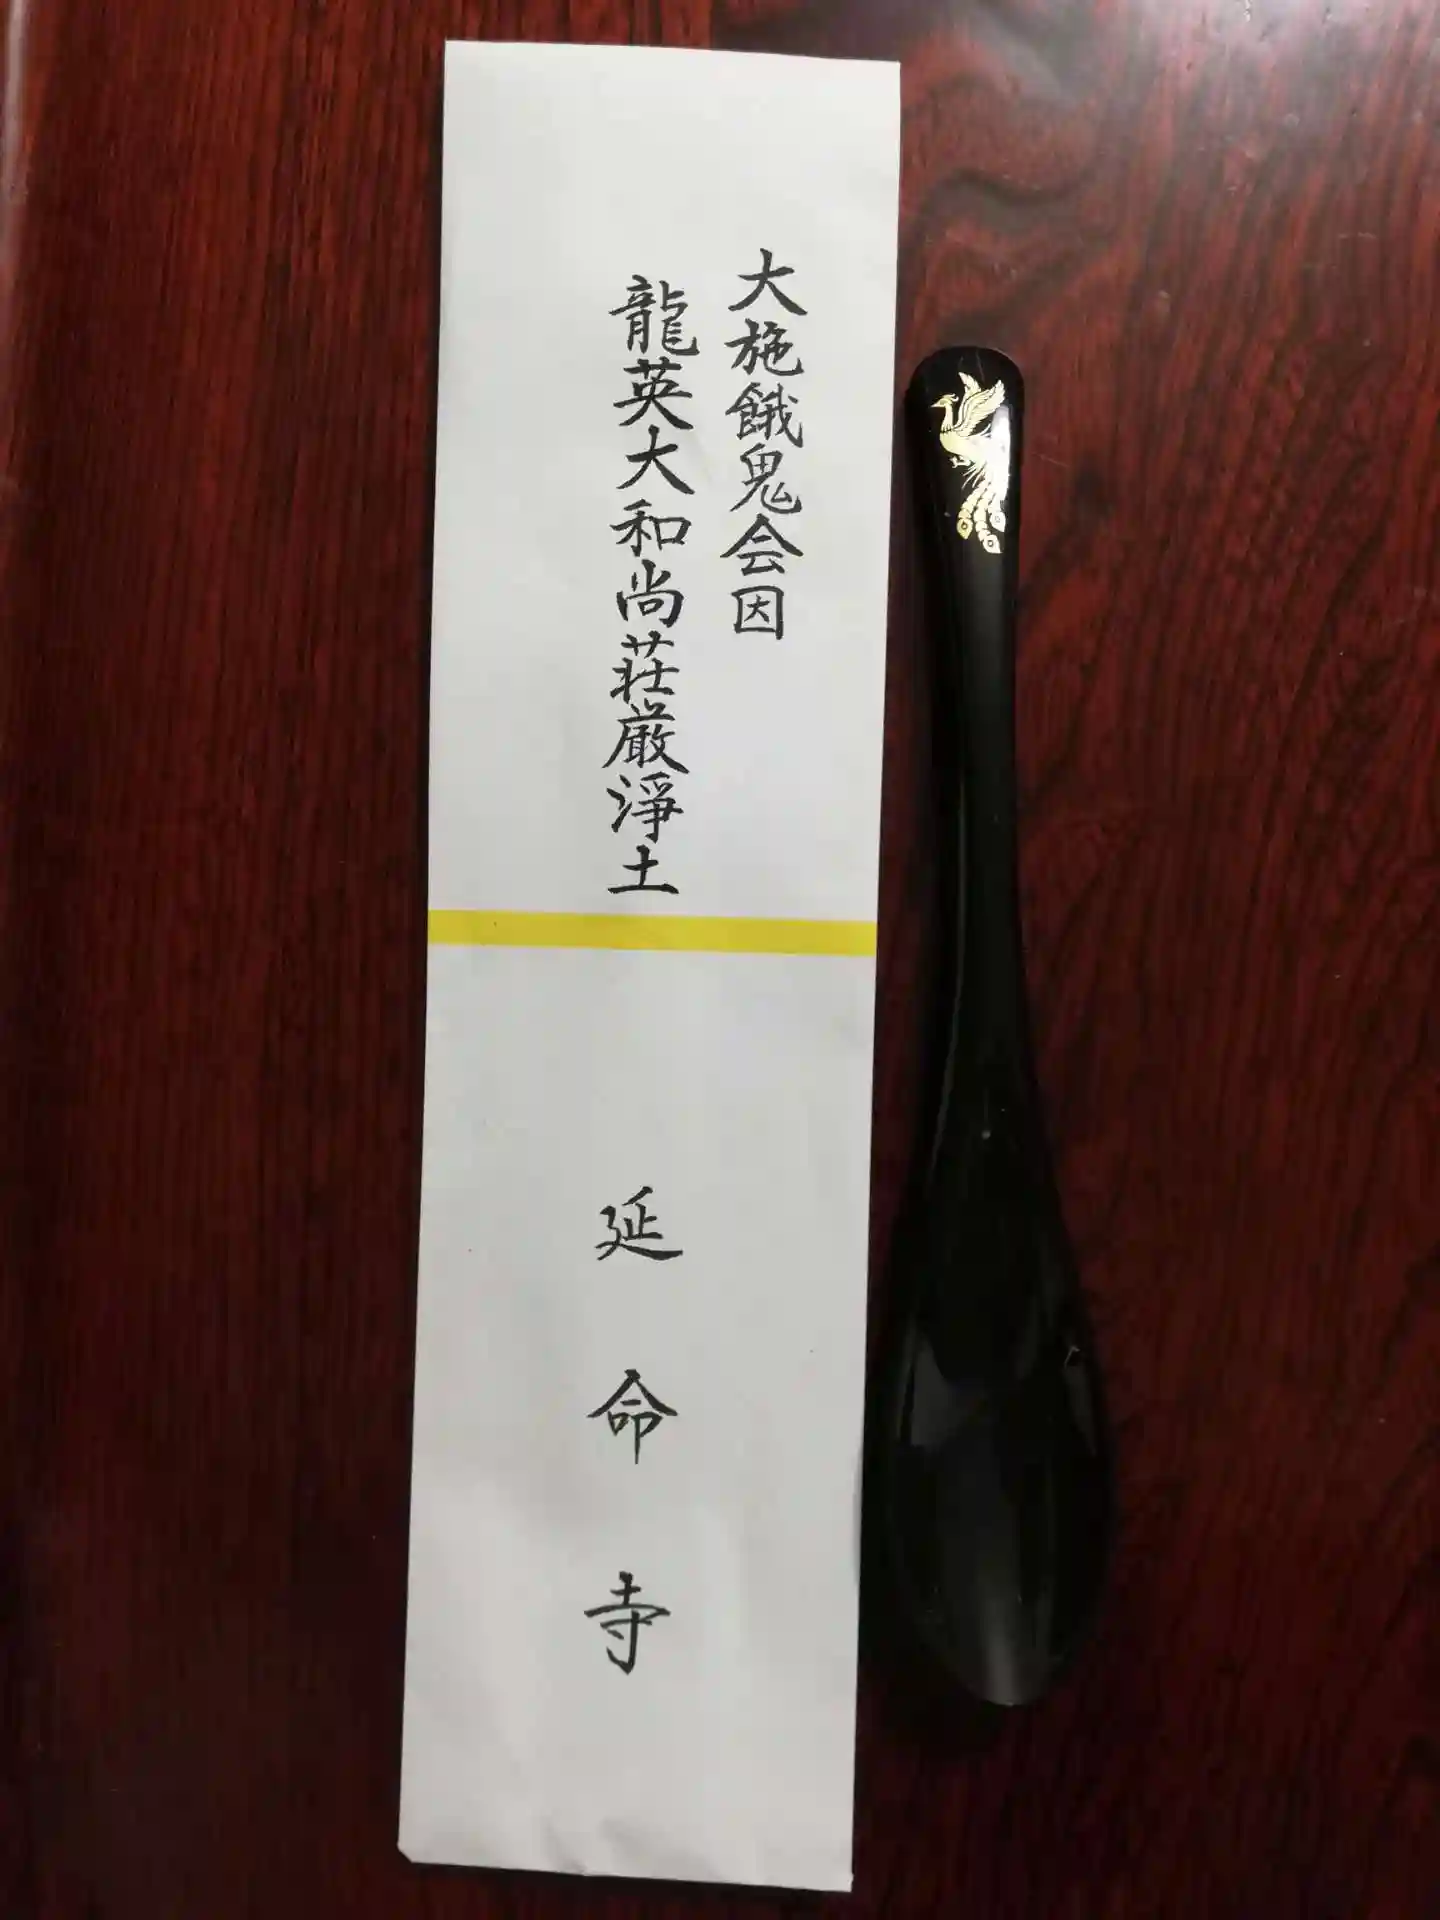 大施餓鬼会因
龍英大和尚荘厳淨土
延命寺